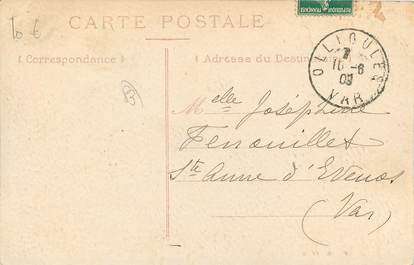 CARTE POSTALE
10 €
Correspondance
Adresse du Destin
OLLIOULES
16 -6
09
VAR
Melle Joséphine
Fenouillet
Ste Anne d'Evenos
(Var)